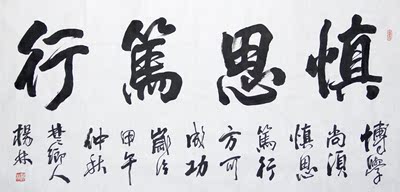 慎思篤行
博學
尚須
慎思
篤行
方可
成功
歲次
甲午
仲秋
楚鄉人
楊林